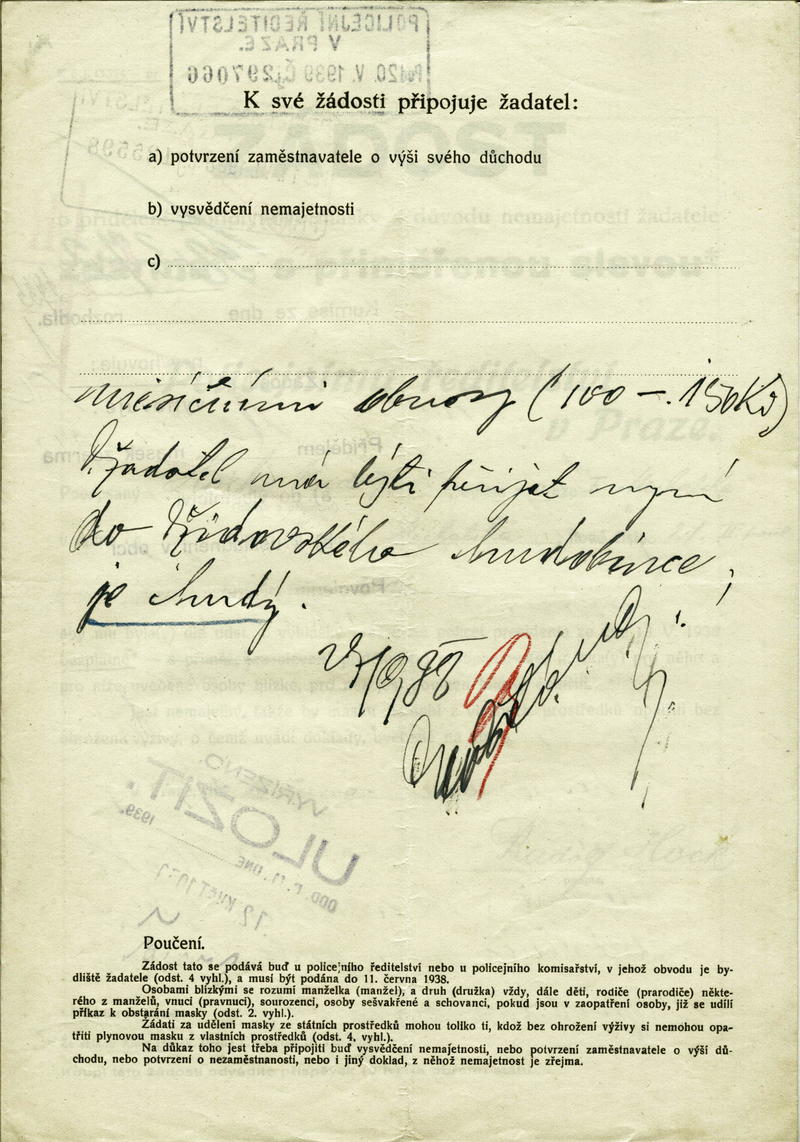 POLICEJNÍ ŘEDITELSTVÍ
V PRAZE.
20. V. 1939 297066
K své žádosti připojuje žadatel:
a) potvrzení zaměstnavatele o výši svého důchodu
b) vysvědčení nemajetnosti
c)
měsíčními obnosy (100 – 150 Kč)
Žadatel má býti přijat nyní
do židovského chudobince,
je chudý.
VYŘÍZENO
ULOŽIT.
ODD. F. 11. DNE 1939.
12 KVĚT 1939
Poučení.
Žádost tato se podává buď u policejního ředitelství nebo u policejního komisařství, v jehož obvodu je by-
dliště žadatele (odst. 4 vyhl.), a musí být podána do 11. června 1938.
Osobami blízkými se rozumí manželka (manžel), a druh (družka) vždy, dále děti, rodiče (prarodiče) někte-
rého z manželů, vnuci (pravnuci), sourozenci, osoby sešvakřené a schovanci, pokud jsou v zaopatření osoby, jíž se udílí
příkaz k obstarání masky (odst. 2. vyhl.).
Žádati za udělení masky ze státních prostředků mohou toliko ti, kdož bez ohrožení výživy si nemohou opa-
třiti plynovou masku z vlastních prostředků (odst. 4. vyhl.).
Na důkaz toho jest třeba připojiti buď vysvědčení nemajetnosti, nebo potvrzení zaměstnavatele o výši dů-
chodu, nebo potvrzení o nezaměstnanosti, nebo i jiný doklad, z něhož nemajetnost je zřejma.